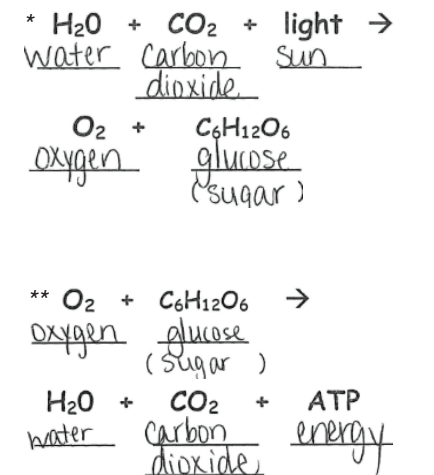 * H₂O + CO₂ + light →
water Carbon sun
dioxide
O₂ + C₆H₁₂O₆
oxygen glucose
(sugar)
** O₂ + C₆H₁₂O₆ →
oxygen glucose
(sugar)
H₂O + CO₂ + ATP
water carbon energy
dioxide